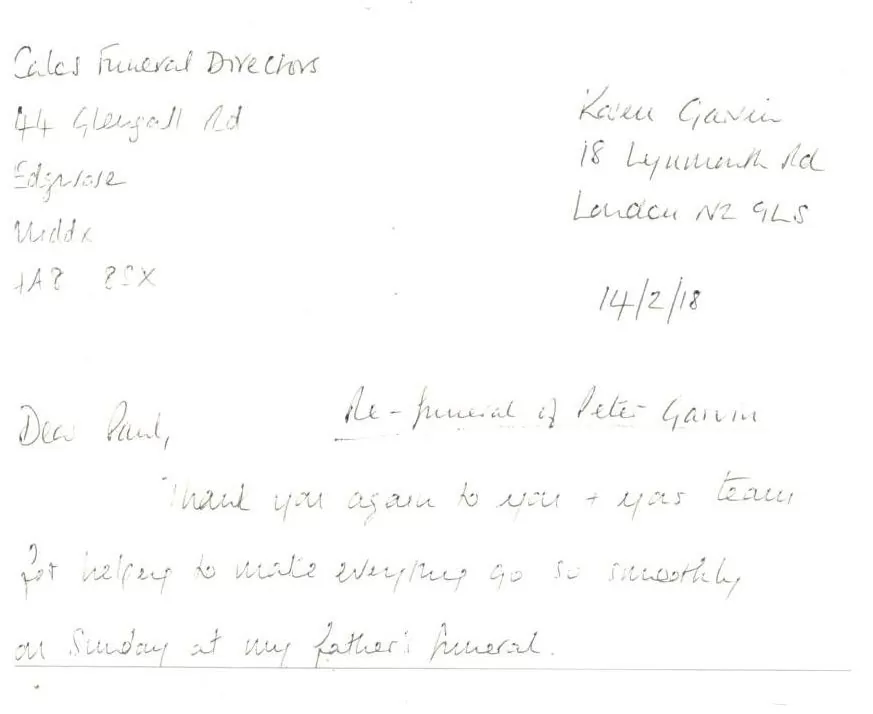 Cales Funeral Directors
44 Glengall Rd
Edgware
Middx
HA8 8SX
Karen Garvin
18 Lynmouth Rd
London N2 9LS
14/2/18
Re - funeral of Peter Garvin
Dear Paul,
Thank you again to you + your team
for helping to make everything go so smoothly
on Sunday at my father's funeral.